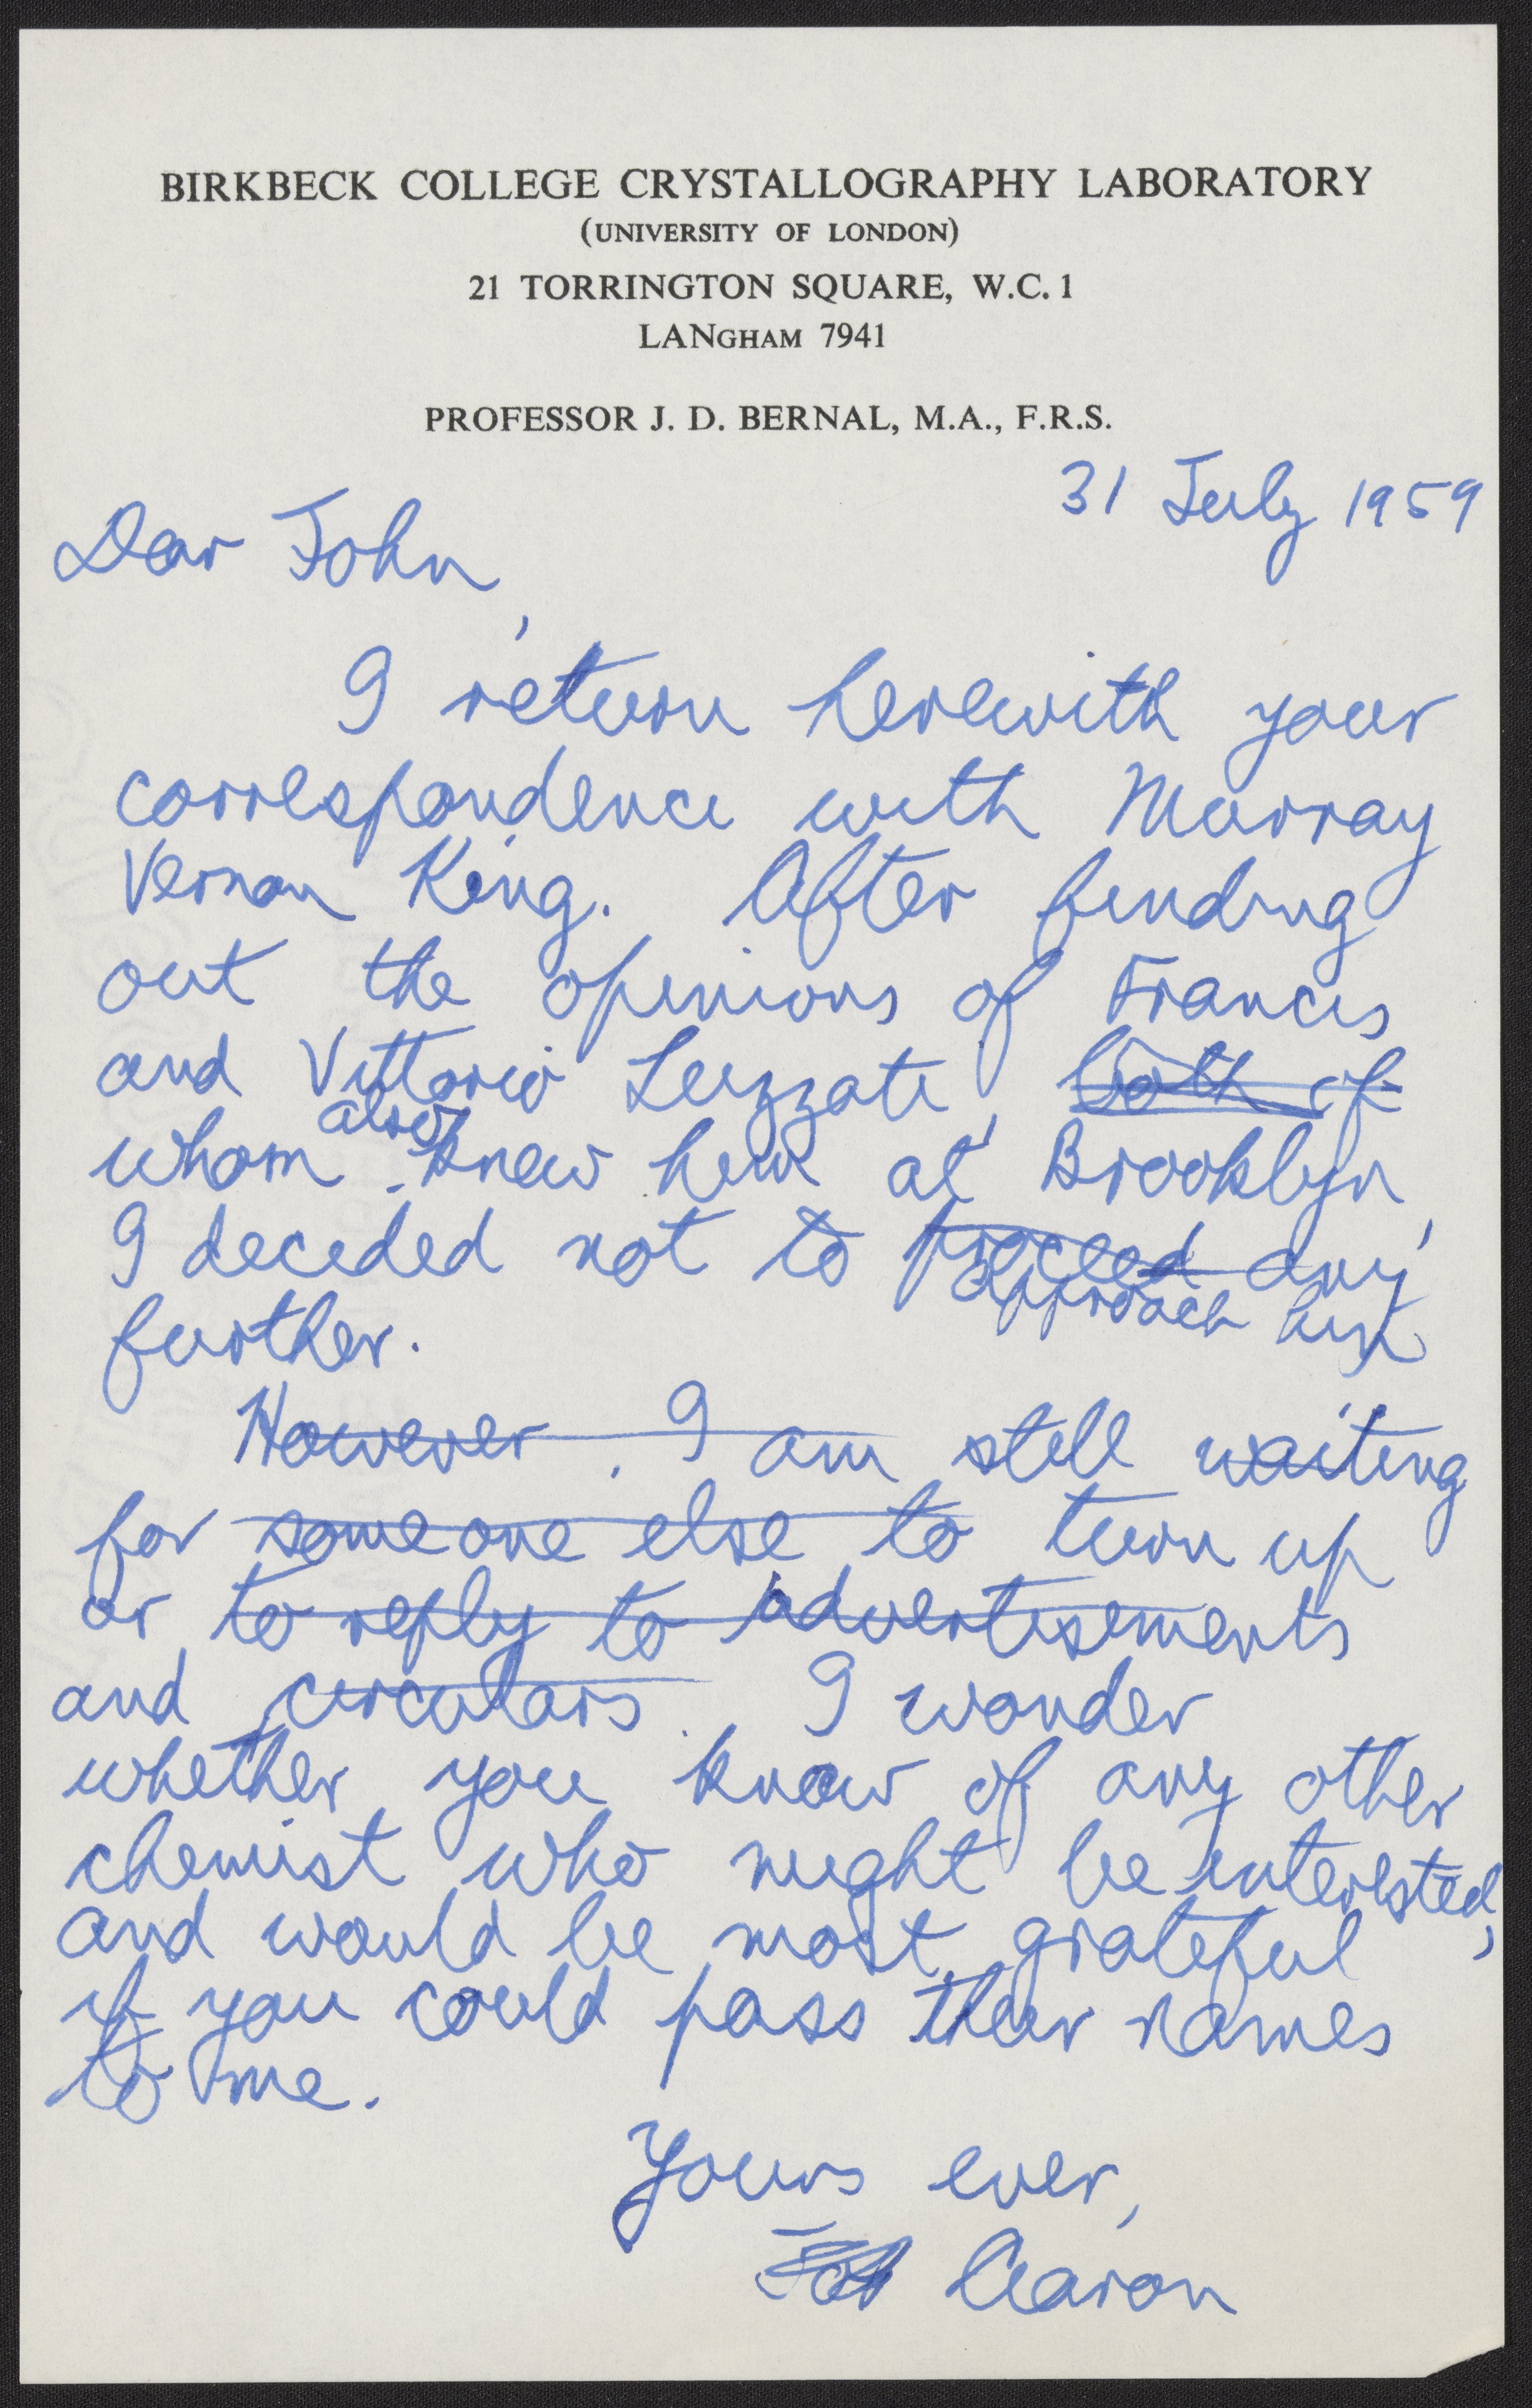 BIRKBECK COLLEGE CRYSTALLOGRAPHY LABORATORY
(UNIVERSITY OF LONDON)
21 TORRINGTON SQUARE, W.C. 1
LANGHAM 7941
PROFESSOR J. D. BERNAL, M.A., F.R.S.
31 July 1959
Dear John,
I return herewith your
correspondence with Murray
Vernon King. After finding
out the opinions of Francis
and Vittorio Luzzati, both of
whom also knew him at Brooklyn,
I decided not to proceed any
approach him
further.
However, I am still waiting
for someone else to turn up
or to reply to advertisements
and circulars. I wonder
whether you know of any other
chemist who might be interested,
and would be most grateful
if you could pass their names
to me.
Yours ever,
Aaron